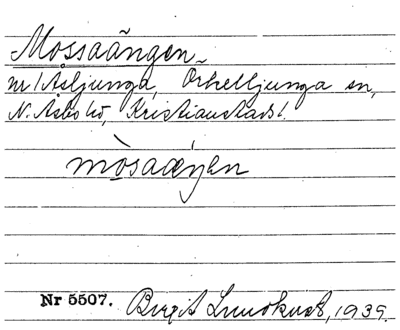 Mossaängen
nr 1 Åsljunga, Örkelljunga sn,
N. Åsbo hd, Kristianstads l.
mòsaæŋen
Nr 5507. Birgit Lundkvist, 1939.